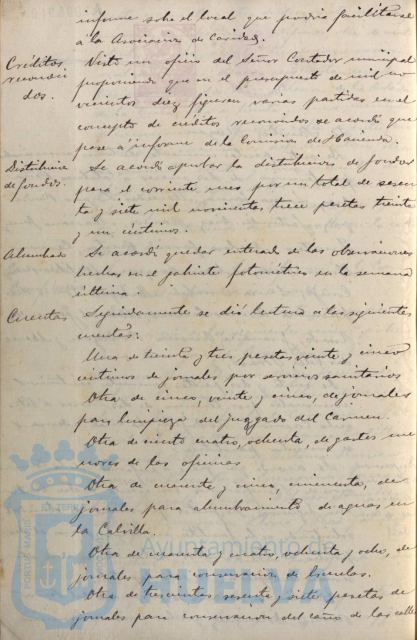 informe sobre el local que podría facilitarse
á la Asociación de Caridad.
Créditos
reconoci
dos.
Visto un oficio del Señor Contador municipal
proponiendo que en el presupuesto de mil no
vecientos diez figuren varias partidas en el
concepto de créditos reconocidos se acordó que
pase a informe de la Comisión de Hacienda.
Distribución
de fondos.
Se acordó aprobar la distribución de fondos
para el corriente mes por un total de sesen
ta y siete mil novecientas trece pesetas treinta
y un céntimos.
Alumbrado
Se acordó quedar enterado de las observaciones
hechas en el gabinete fotométrico en la semana
última.
Cuentas
Seguidamente se dió lectura a las siguientes
cuentas:
Una de treinta y tres pesetas veinte y cinco
céntimos de jornales por servicios sanitarios
Otra de cinco, veinte y cinco, de jornales
para limpieza del Juzgado del Carmen.
Otra de ciento cuatro, ochenta, de gastos me
nores de las oficinas
Otra de cuarenta y cinco, cincuenta, de
jornales para alumbramiento de aguas en
la Calvilla.
Otra de cuarenta y cuatro, ochenta y ocho, de
jornales para conservación de Escuelas.
Otra de trescientas sesenta y siete pesetas de
jornales para conservación del caño de las calles
Ayuntamiento de
HUELVA